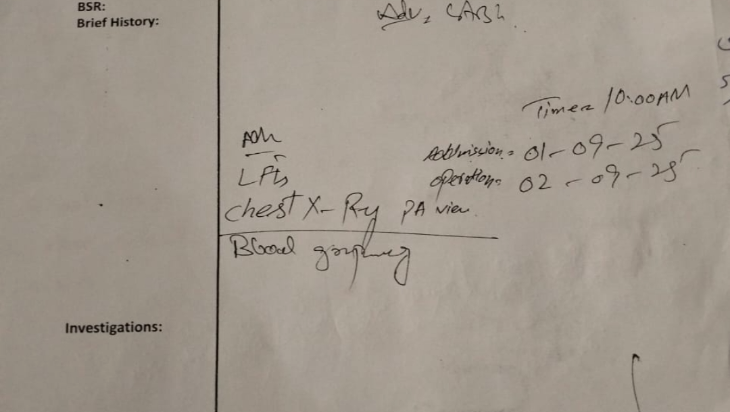 BSR:
Brief History:
Adv, CABG
Time= 10:00AM
Adv
Addmission= 01-09-25
LFTs
operation= 02-09-25
chest X-Ry PA view
Blood grouping
Investigations: